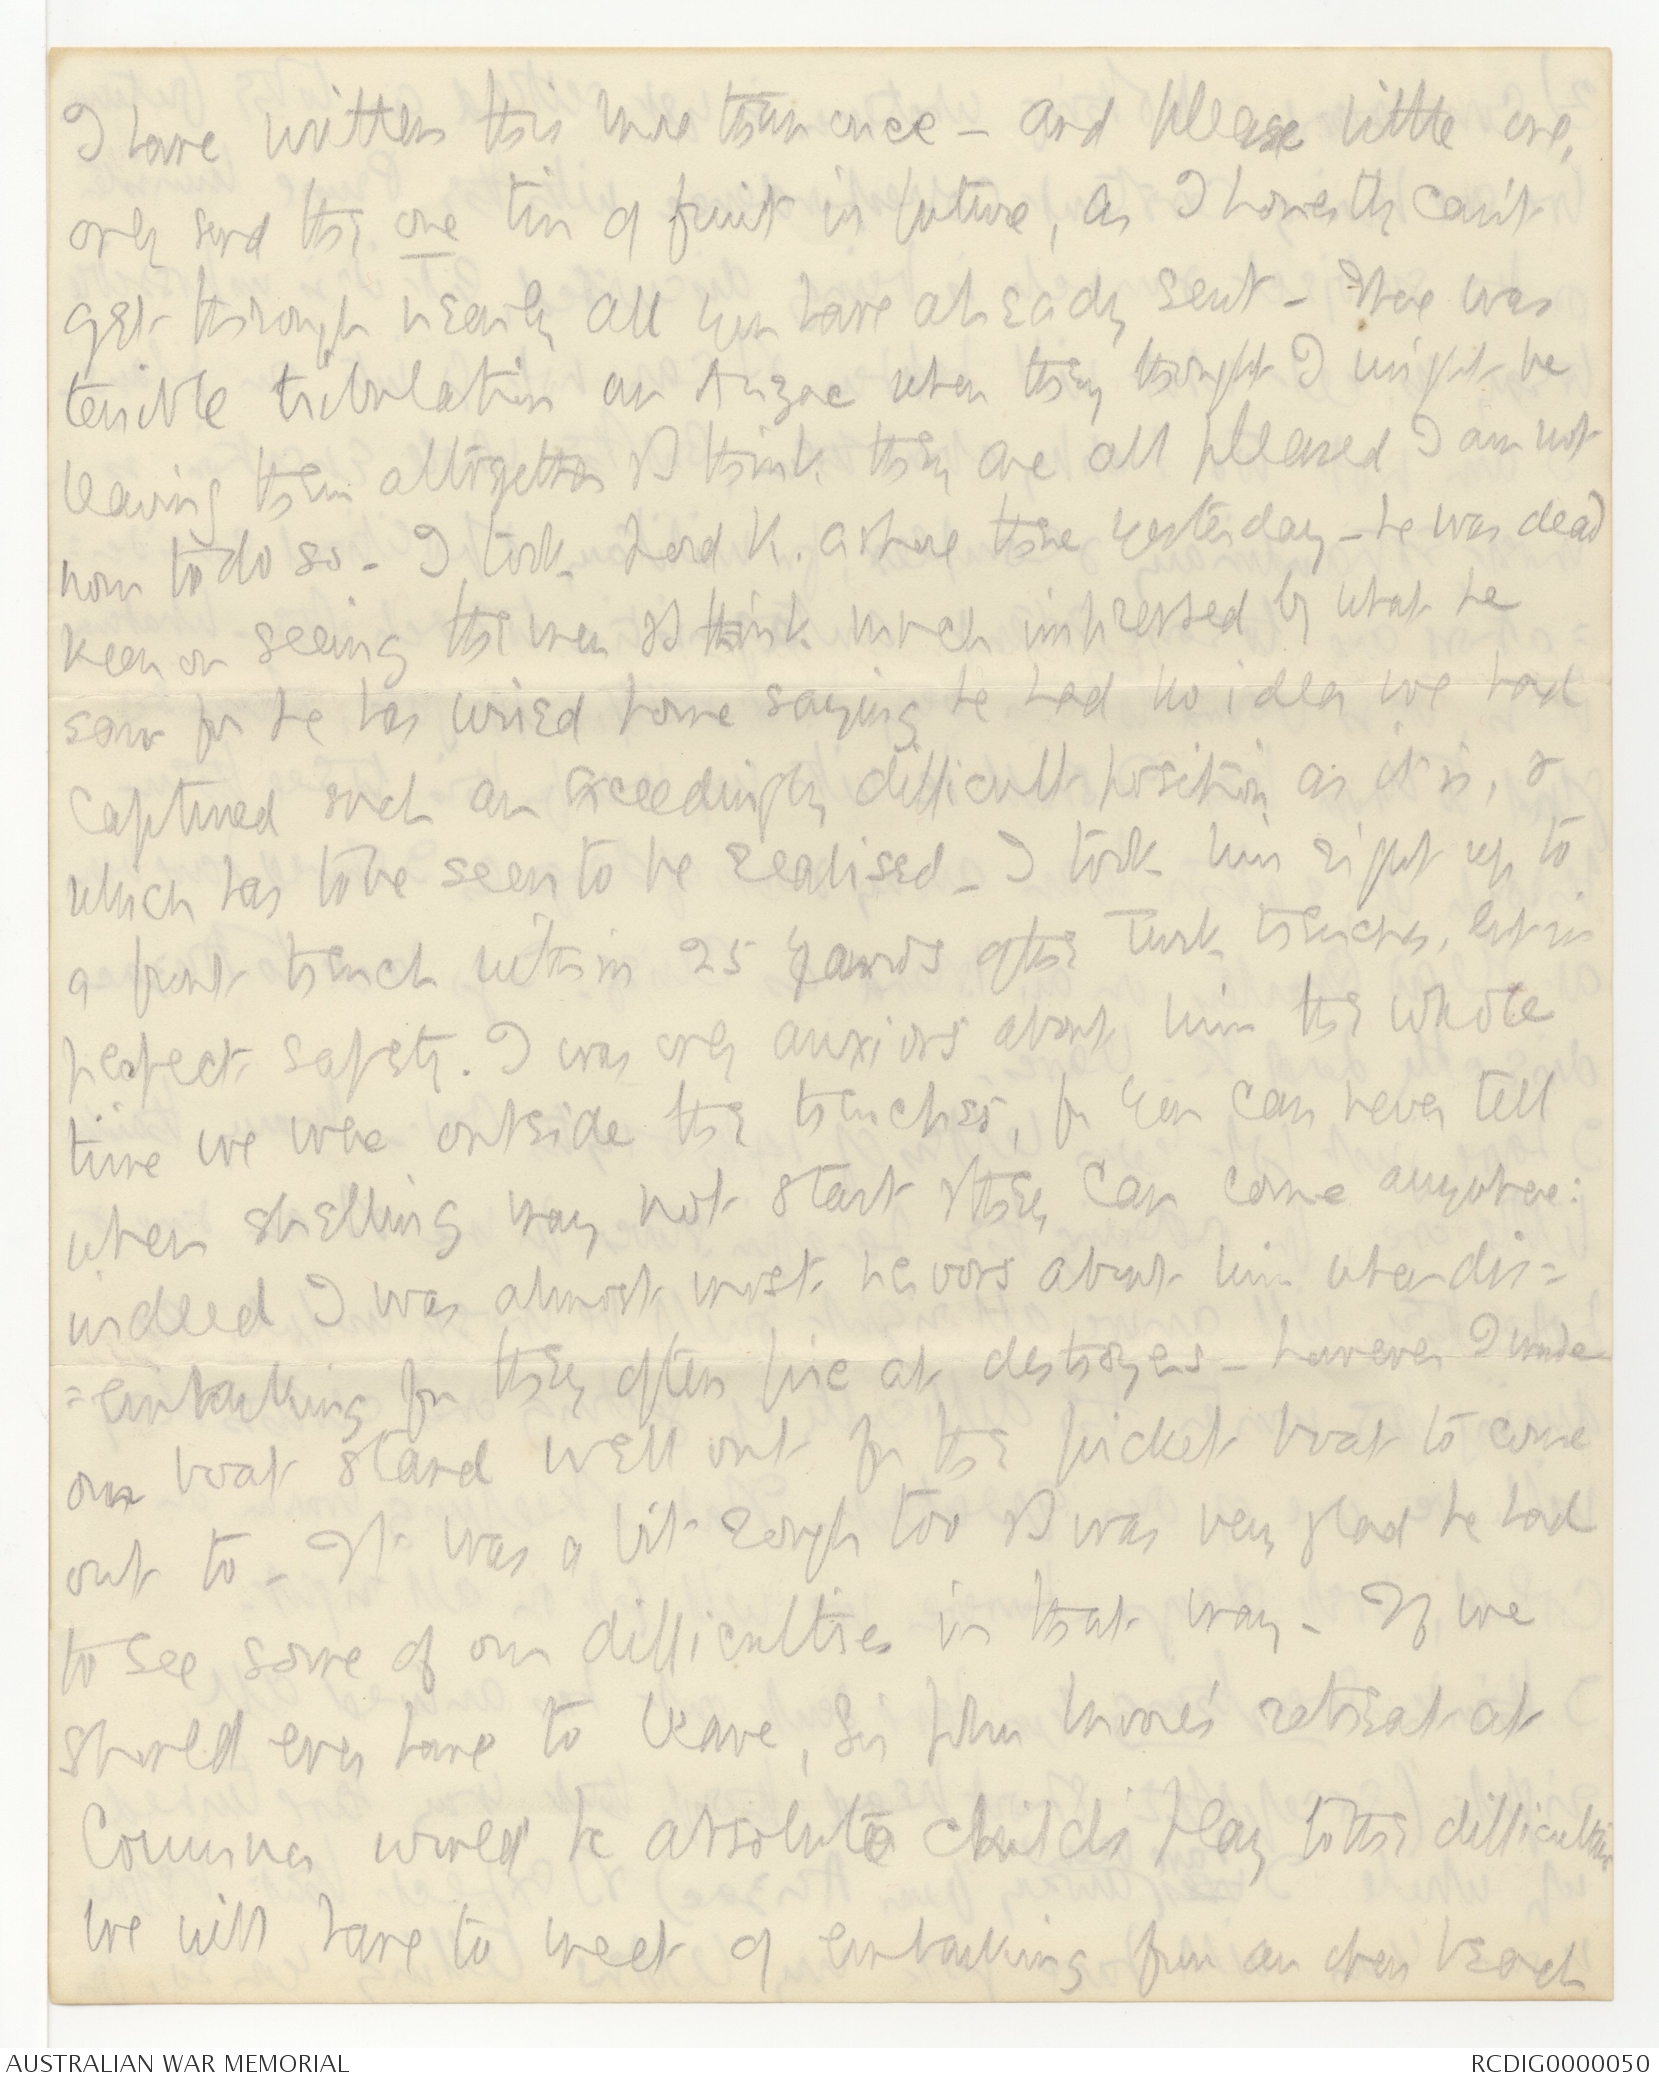 I have written this more than once – and please little one,
only send the one tin of fruit in future, as I honestly can't
get through nearly all you have already sent – There was
terrible tribulation on Anzac when they thought I might be
leaving them altogether & I think they are all pleased I am not
now to do so – I took Lord K. ashore there yesterday – he was dead
keen on seeing the men & I think much impressed by what he
saw for he has wired home saying he had no idea we had
captured such an exceedingly difficult position as it is, &
which has to be seen to be realised – I took him right up to
a front trench within 25 yards of the Turk trenches, but in
perfect safety. I was only anxious about him the whole
time we were outside the trenches, for you can never tell
when shelling may not start & they can come anywhere:
indeed I was almost most nervous about him when dis=
=embarking for they often fire at destroyers – however I made
our boat stand well out for the picket boat to come
out to – It was a bit rough too & I was very glad he had
to see some of our difficulties in that way – If we
should ever have to leave, Sir John Moore's retreat at
Corunna would be absolute child's play to the difficulties
we will have to meet of embarking from an open beach
AUSTRALIAN WAR MEMORIAL
RCDIG0000050